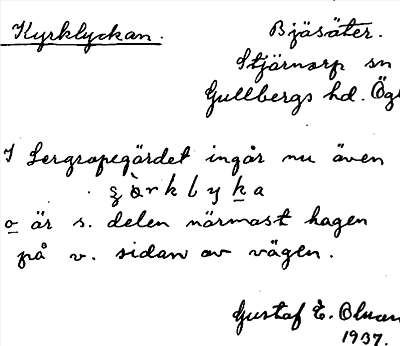 Kyrklyckan.
Bjäsäter.
Stjärnorp sn
Gullbergs hd. Ög
I Lergropegärdet ingår nu även
kyrklyka
o är s. delen närmast hagen
på v. sidan av vägen.
Gustaf E.
1937.